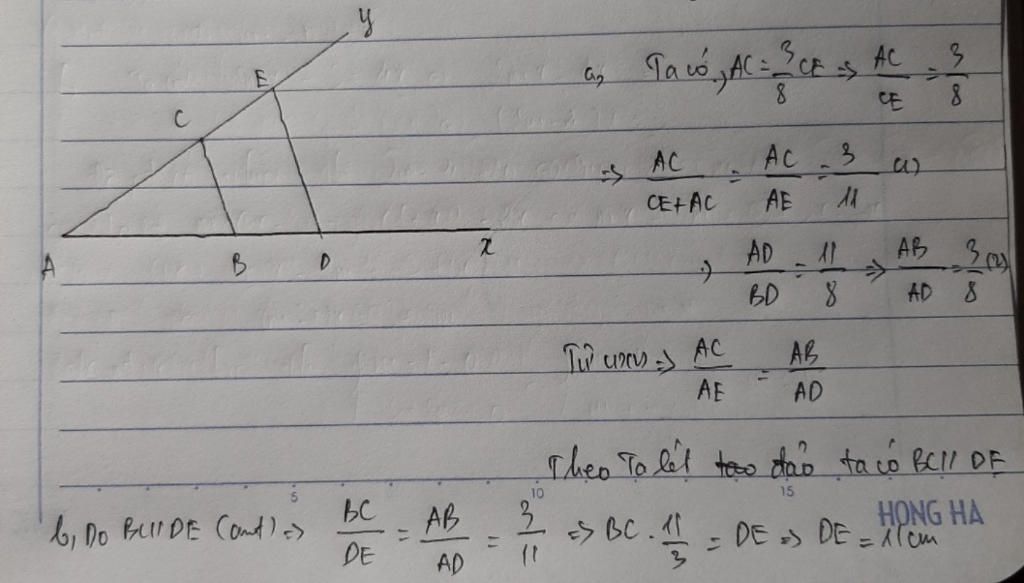 y
E
C
A B D x
a, Ta có, AC = 3/8 CE => AC/CE = 3/8
=> AC/CE+AC = AC/AE = 3/11 (1)
; AD/BD = 11/8 => AB/AD = 3/8 (2)
Từ (1)(2) => AC/AE = AB/AD
Theo Ta lét đảo ta có BC // DE
5 10 15
HONG HA
b, Do BC // DE (cmt) => BC/DE = AB/AD = 3/11 => BC . 11/3 = DE => DE = 11cm